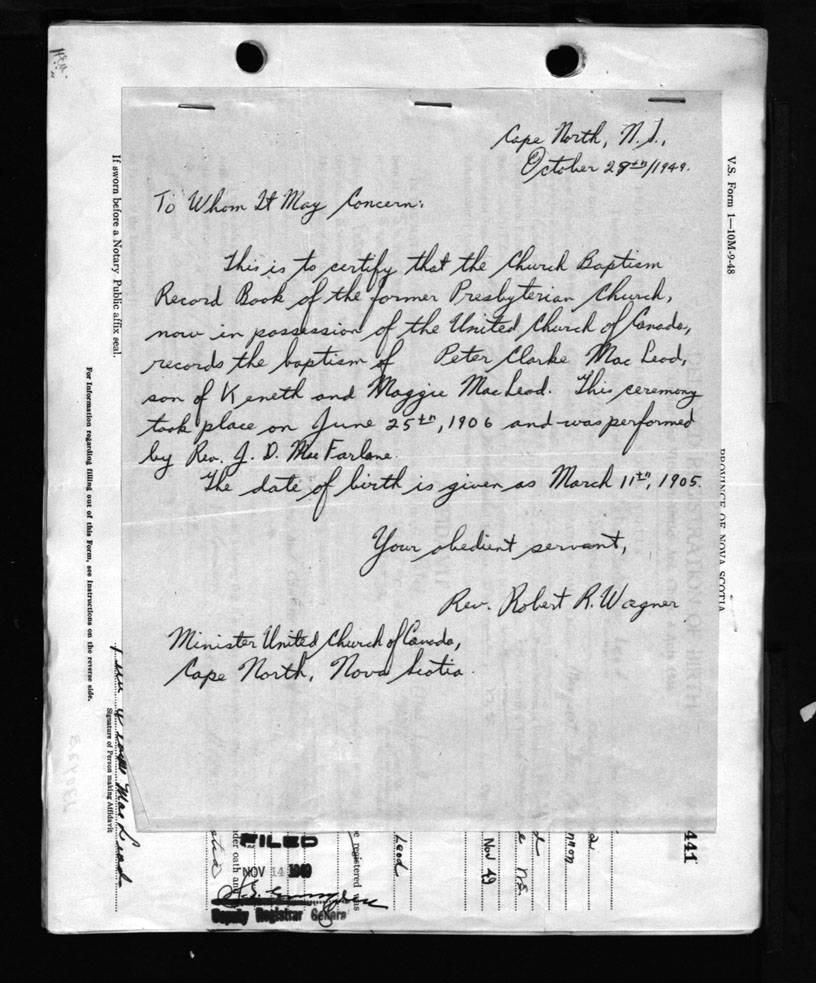 Cape North, N.S.,
October 28th/1949.
To Whom It May Concern:
This is to certify that the Church Baptism
Record Book of the former Presbyterian Church,
now in possession of the United Church of Canada,
records the baptism of Peter Clarke MacLeod,
son of Keneth and Maggie MacLeod. This ceremony
took place on June 25th, 1906 and was performed
by Rev. J. D. MacFarlane.
The date of birth is given as March 11th, 1905.
Your obedient servant,
Rev. Robert R. Wagner
Minister United Church of Canada,
Cape North, Nova Scotia.
V.S. Form 1—10M-9-48
PROVINCE OF NOVA SCOTIA
441
If sworn before a Notary Public affix seal.
For Information regarding filling out of this Form, see Instructions on the reverse side.
MacLeod
Signature of Person making Affidavit
FILED
NOV 14 1949
Deputy Registrar General
der oath and
e registered
Leod
Nov 49
N.S.